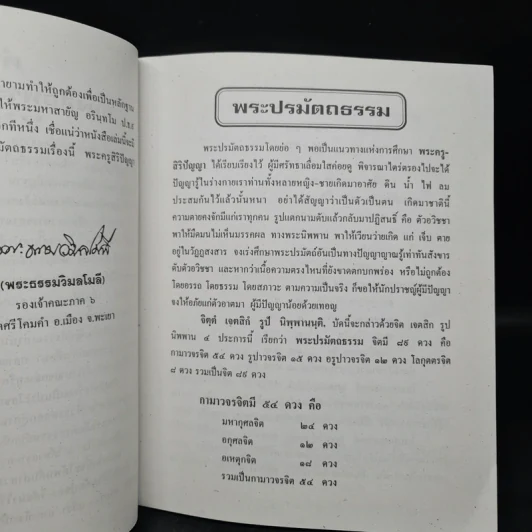 ยายามทำให้ถูกต้องเพื่อเป็นหลักฐาน
ให้พระมหาสายัญ อรินฺทโม ป.ธ.๙
กทีหนึ่ง เชื่อแน่ว่าหนังสือเล่มนี้จะมี
มัตถธรรมเรื่องนี้ พระครูสิริปัญญา
(พระธรรมวิมลโมลี)
รองเจ้าคณะภาค ๖
ดศรีโคมคำ อ.เมือง จ.พะเยา
พระปรมัตถธรรม
พระปรมัตถธรรมโดยย่อ ๆ พอเป็นแนวทางแห่งการศึกษา พระครู-
สิริปัญญา ได้เรียบเรียงไว้ ผู้มีศรัทธาเลื่อมใสค่อยดู พิจารณาใคร่ตรองไปจะได้
ปัญญารู้ในร่างกายเราท่านทั้งหลายหญิง-ชายเกิดมาอาศัย ดิน น้ำ ไฟ ลม
ประสมกันไว้แล้วนั้นหนา อย่าได้สัญญาว่าเป็นตัวเป็นตน เกิดมาชาตินี้
ความตายคงจักมีแก่เราทุกคน รูปแตกนามดับแล้วกลับมาปฏิสนธิ์ คือ ตัวอวิชชา
พาให้มืดมนไม่เห็นมรรคผล ทางพระนิพพาน พาให้เวียนว่ายเกิด แก่ เจ็บ ตาย
อยู่ในวัฏฏสงสาร จงเร่งศึกษาพระปรมัตถ์อันเป็นทางปัญญาญาณรู้เท่าทันสังขาร
ดับตัวอวิชชา และหากว่าเนื้อความตรงไหนที่ยังขาดตกบกพร่อง หรือไม่ถูกต้อง
โดยอรรถ โดยธรรม โดยสภาวะ ตามความเป็นจริง ก็ขอให้นักปราชญ์ผู้มีปัญญา
จงให้อภัยแก่ตัวอาตมา ผู้มีปัญญาน้อยด้วยเทอญ
จิตฺตํ เจตสิกํ รูปํ นิพฺพานนฺติ. บัดนี้จะกล่าวด้วยจิต เจตสิก รูป
นิพพาน ๔ ประการนี้ เรียกว่า พระปรมัตถธรรม จิตมี ๘๙ ดวง คือ
กามาวจรจิต ๕๔ ดวง รูปาวจรจิต ๑๕ ดวง อรูปาวจรจิต ๑๒ ดวง โลกุตตรจิต
๘ ดวง รวมเป็นจิต ๘๙ ดวง
กามาวจรจิตมี ๕๔ ดวง คือ
มหากุศลจิต ๒๔ ดวง
อกุศลจิต ๑๒ ดวง
อเหตุกจิต ๑๘ ดวง
รวมเป็นกามาวจรจิต ๕๔ ดวง